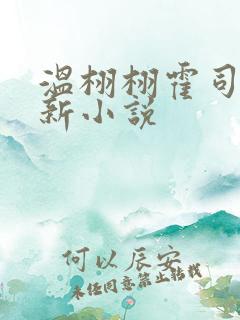 温栩栩霍司
新小说
何以辰安
未经同意禁止转载